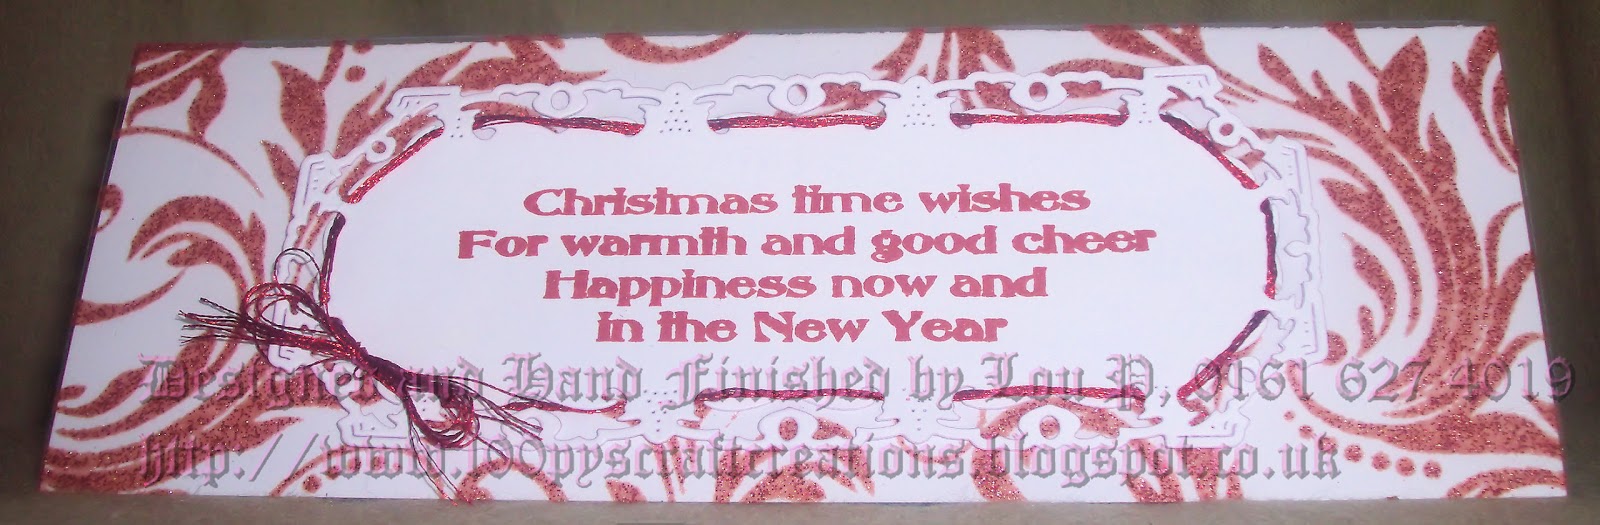 Christmas time wishes
For warmth and good cheer
Happiness now and
in the New Year
Designed and Hand Finished by Lou P, 0161 627 4019
http://www.l00pyscraftcreations.blogspot.co.uk